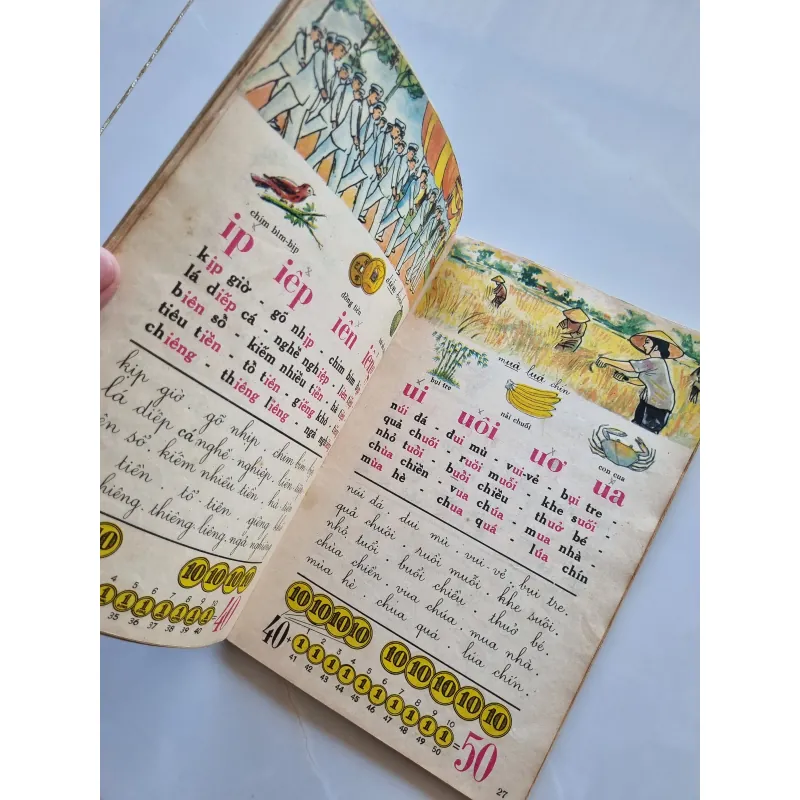 chim bìm-bịp
ip iêp iên iêng
đồng tiền
kịp giờ - gõ nhịp - chim bìm
lá diếp cá - nghề nghiệp - liên
biên sổ - kiếm nhiều tiền - hà
tiêu tiền - tổ tiên - giếng khô
chiêng - thiêng liêng - ngả
kịp giờ . gõ nhịp . chim bìm
lá diếp cá nghề nghiệp .
sổ . kiếm nhiều tiền . hà
tiền . tổ tiên . giếng
thiêng liêng . ngả
10
10 10 10 10
4 5 6 7 8 9 10
1 1 1 1 1 1 1
35 36 37 38 39 40
mùa lúa chín
bụi tre
nải chuối
con cua
ui uôi uơ ua
núi đá - đui mù - vui-vẻ - bụi tre
quả chuối - ruồi muỗi - khe suối -
nhỏ tuổi - buổi chiều - thuở bé
chùa chiền - vua chúa - mua nhà -
mùa hè - chua quá - lúa chín
núi đá . đui mù . vui vẻ . bụi tre .
quả chuối . ruồi muỗi . khe suối .
nhỏ tuổi . buổi chiều . thuở bé .
chùa chiền . vua chúa . mua nhà .
mùa hè . chùa quá . lúa chín .
10 10 10 10
10 10 10 10 10
1 2 3 4 5 6 7 8 9 10
40 + 1 1 1 1 1 1 1 1 1 1 = 50
41 42 43 44 45 46 47 48 49 50
27